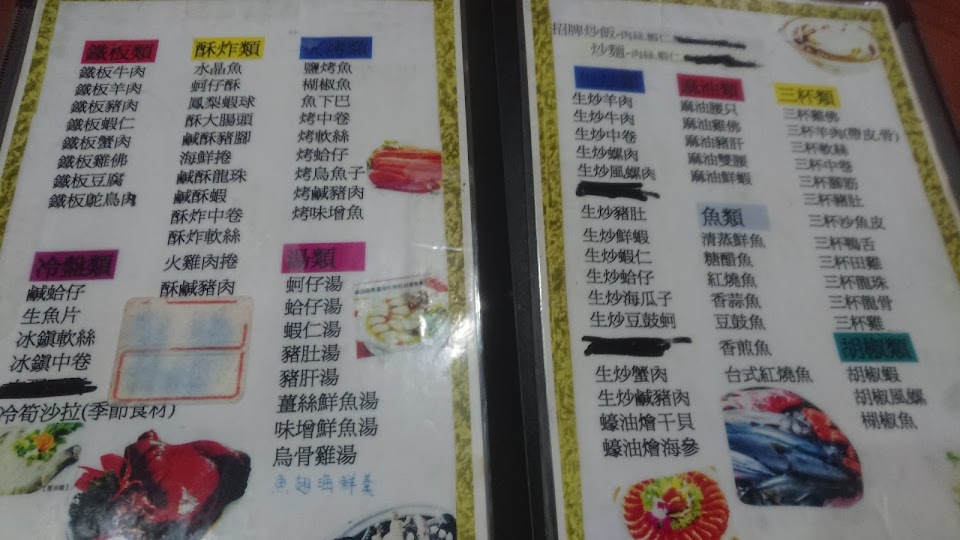 鐵板類
鐵板牛肉
鐵板羊肉
鐵板豬肉
鐵板蝦仁
鐵板蟹肉
鐵板雞佛
鐵板豆腐
鐵板鴕鳥肉
酥炸類
水晶魚
蚵仔酥
鳳梨蝦球
酥大腸頭
鹹酥豬腳
海鮮捲
鹹酥龍珠
鹹酥蝦
酥炸中卷
酥炸軟絲
火雞肉捲
酥鹹豬肉
鹽烤魚
楜椒魚
魚下巴
烤中卷
烤軟絲
烤蛤仔
烤烏魚子
烤鹹豬肉
烤味增魚
冷盤類
鹹蛤仔
生魚片
冰鎮軟絲
冰鎮中卷
冷筍沙拉(季節食材)
湯類
蚵仔湯
蛤仔湯
蝦仁湯
豬肚湯
豬肝湯
薑絲鮮魚湯
味增鮮魚湯
烏骨雞湯
魚翅海鮮羹
招牌炒飯-肉絲.蝦仁
炒麵-肉絲.蝦仁
生炒羊肉
生炒牛肉
生炒中卷
生炒螺肉
生炒風螺肉
生炒豬肚
生炒鮮蝦
生炒蝦仁
生炒蛤仔
生炒海瓜子
生炒豆鼓蚵
生炒蟹肉
生炒鹹豬肉
蠔油燴干貝
蠔油燴海參
麻油類
麻油腰只
麻油雞佛
麻油豬肝
麻油雙腰
麻油鮮蝦
魚類
清蒸鮮魚
糖醋魚
紅燒魚
香蒜魚
豆鼓魚
香煎魚
台式紅燒魚
三杯類
三杯雞佛
三杯羊肉(帶皮.骨)
三杯軟絲
三杯中卷
三杯腳筋
三杯豬肚
三杯沙魚皮
三杯鴨舌
三杯田雞
三杯龍珠
三杯龍骨
三杯雞
胡椒類
胡椒蝦
胡椒風螺
楜椒魚